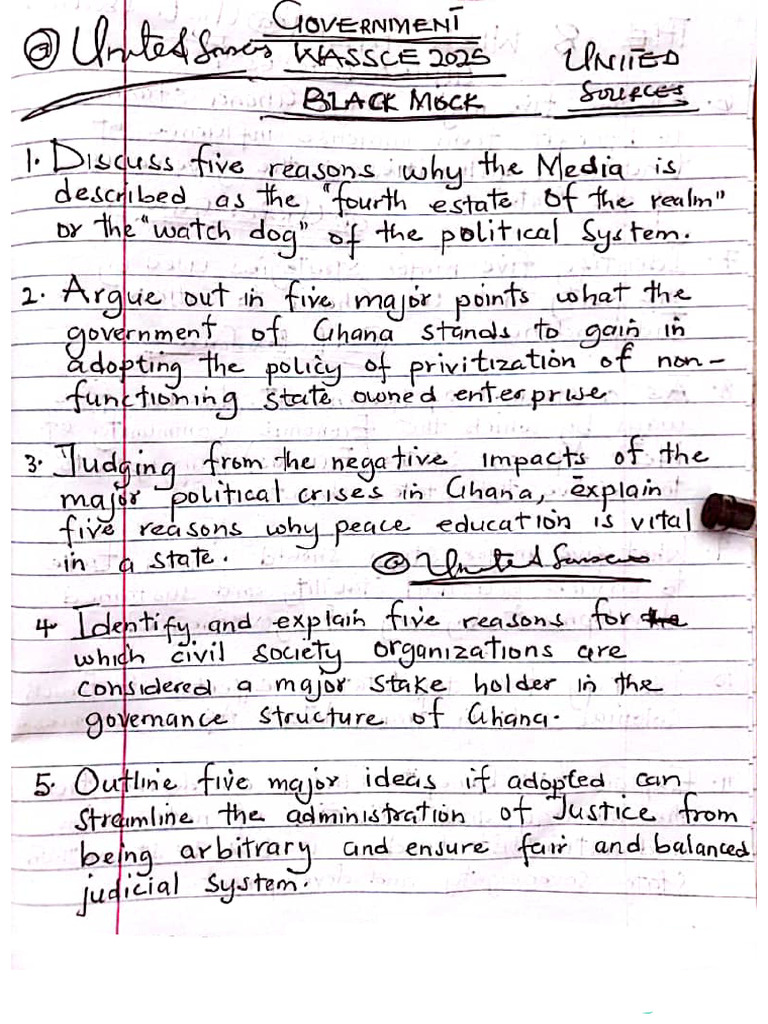 GOVERNMENT
@ United Sources WASSCE 2025 UNITED
BLACK MOCK SOURCES
1. Discuss five reasons why the Media is
described as the "fourth estate of the realm"
or the "watch dog" of the political System.
2. Argue out in five major points what the
government of Ghana stands to gain in
adopting the policy of privitization of non-
functioning state owned enterprise
3. Judging from the negative impacts of the
major political crises in Ghana, explain
five reasons why peace education is vital
in a state. @ United Sources
4. Identify and explain five reasons for the
which civil society organizations are
considered a major stake holder in the
governance structure of Ghana.
5. Outline five major ideas if adopted can
streamline the administration of Justice from
being arbitrary and ensure fair and balanced
judicial system.